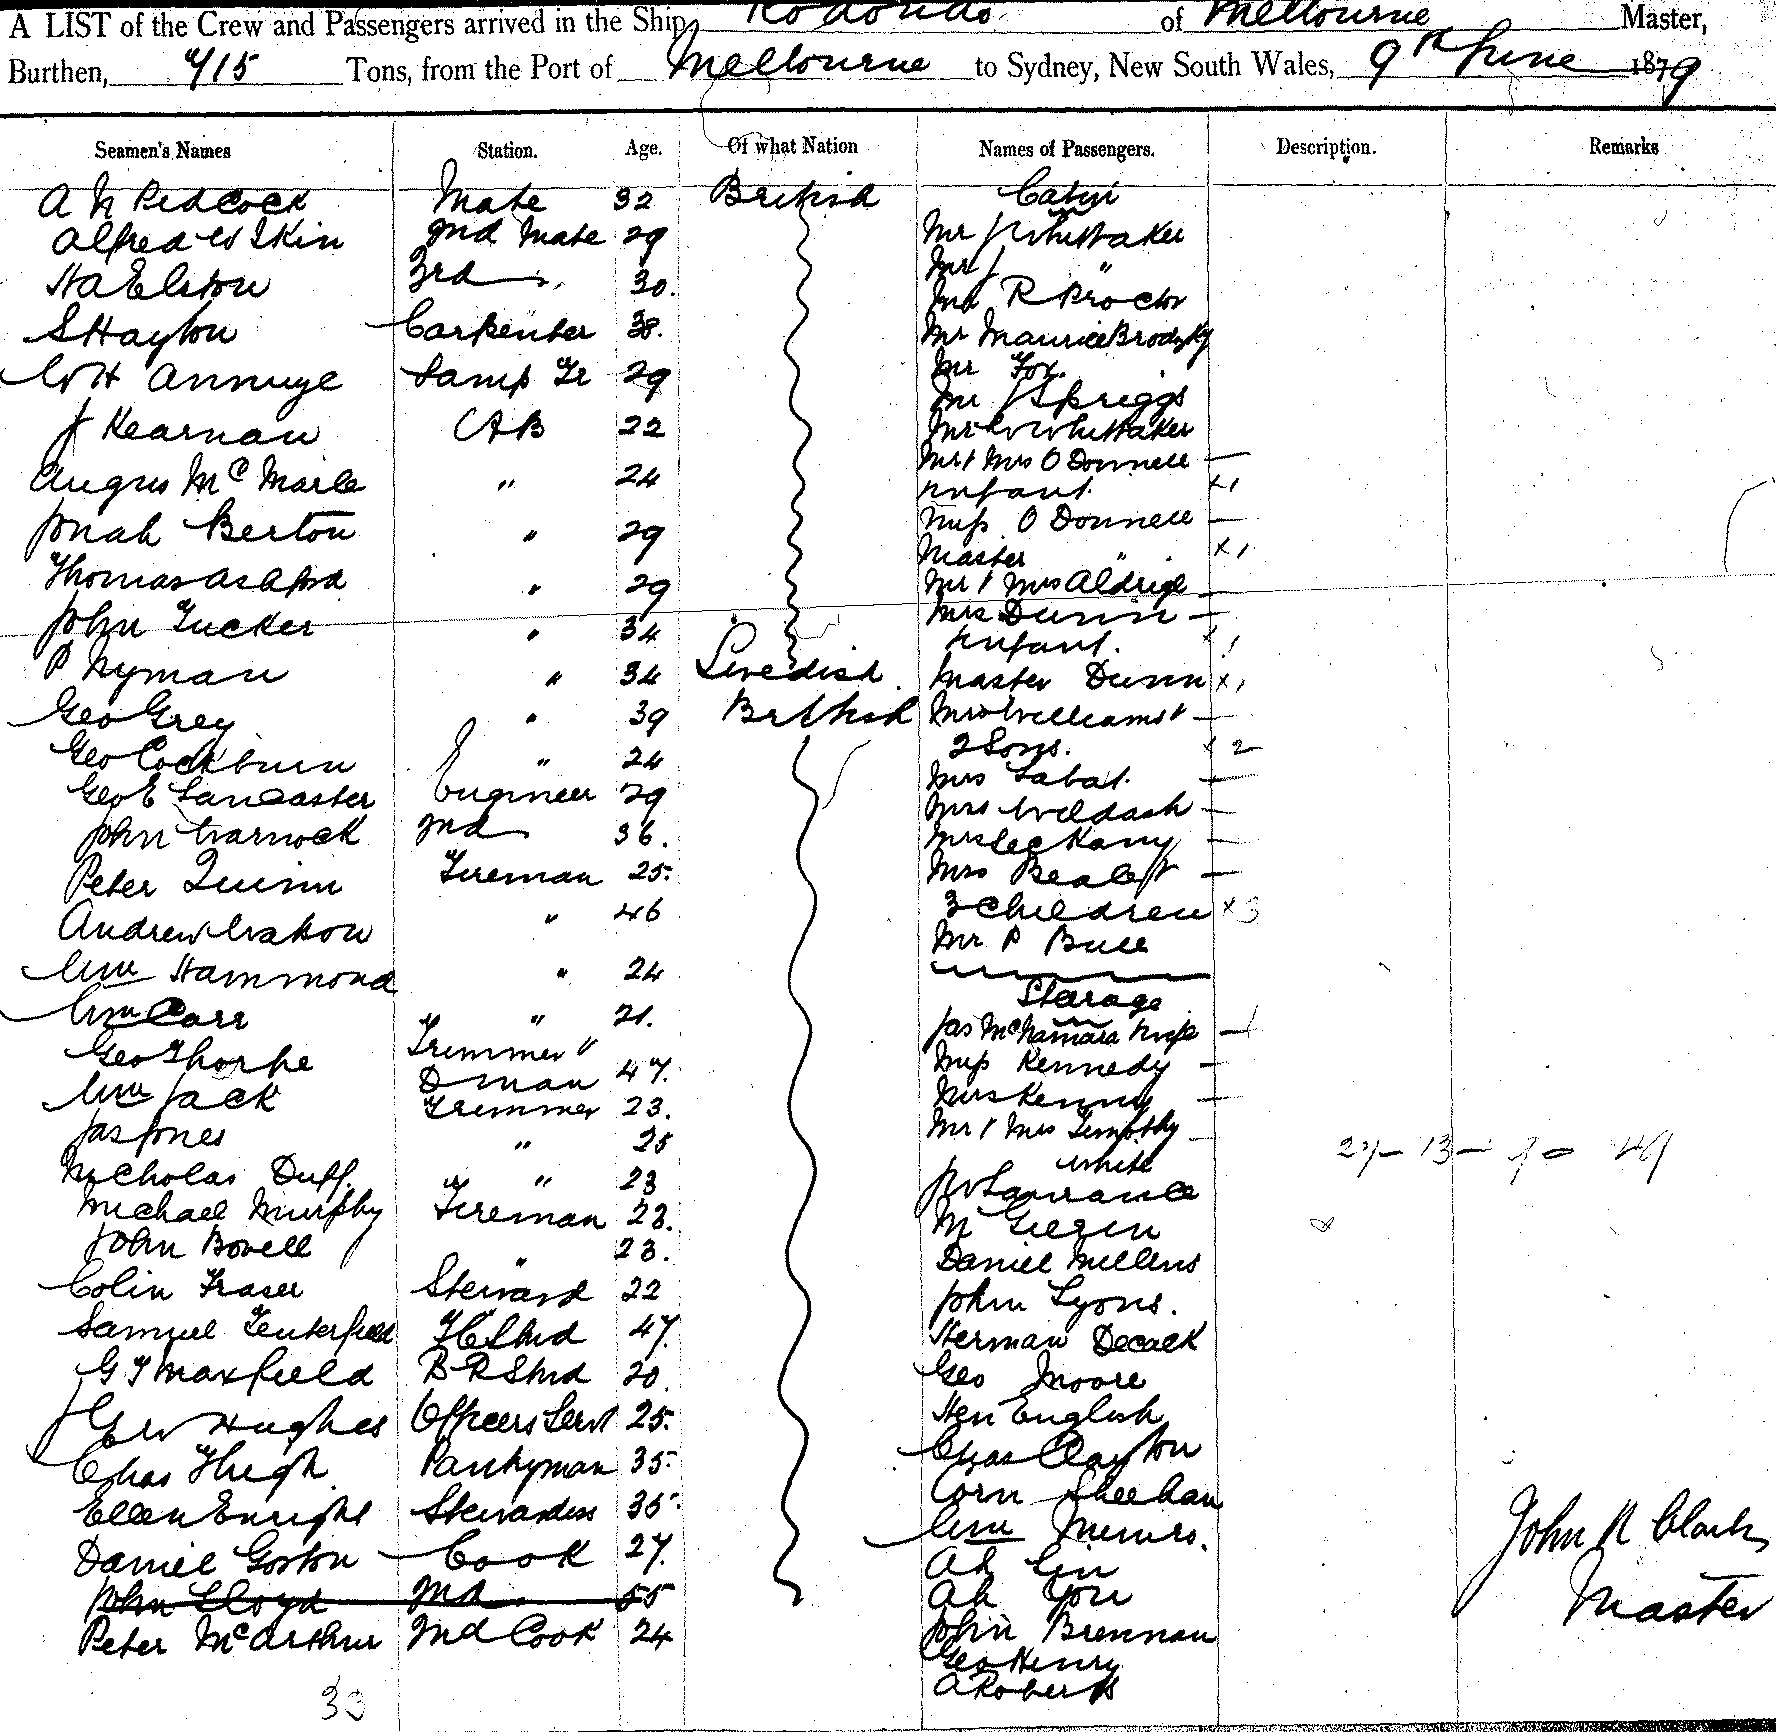 A LIST of the Crew and Passengers arrived in the Ship, Rodondo of Melbourne Master,
Burthen, 715 Tons, from the Port of Melbourne to Sydney, New South Wales, 9th June 1879
Seamen's Names Station. Age. Of what Nation Names of Passengers. Description. Remarks
A N Pedcock Mate 32 British Cabin
Alfred W Skin 2nd Mate 29 Mr J Whittaker
3rd 30. Mr J "
Mr R Proctor
S Hayton Carpenter 38. Mr Maurice Brodzky
W H Lamp Tr 29 Mr Fox.
Mr J Spriggs
J Kearnan AB 22 Mr W Whittaker
Mr & Mrs O Donnell —
Angus Mc " 24 Infant. x 1
Jonah Berton " 29 Miss O Donnell —
Master " x 1
Thomas Ashford " 29 Mr & Mrs Aldrige —
John Tucker " 34 Mrs Dunn —
Infant. x 1
P Nyman " 34 Swedish. Master Dunn x 1
Geo Grey " 39 British Mrs Williams & —
Geo Cockburn " 24 2 Sons. x 2
Geo E Lancaster Engineer 29 Mrs Labat. —
John Warnock 2nd 36. Mrs Weldash —
Mrs —
Peter Quinn Fireman 25. Mrs &  —
Andrew " 46 3 Children x 3
Mr P Bull
Wm Hammond " 24
Wm Carr " 21. Sterage
Geo Thorpe Trimmer & Jas McNamara —
Dman 47. Miss Kennedy —
Wm Jack Trimmer 23. Mrs Kenny —
Jas Jones " 25 Mr & Mrs Timothy —
Nicholas Duff. " " 23 White
Michael Murphy Fireman 23. J W Lawrance
John Bovell " 23. M
Daniel Mellins
Colin Fraser Steward 22 John Lyons.
Samuel Tenterfield F C Stwd 47. Herman
G T Maxfield B R Stwd 20. Geo Moore
Geo W Hughes Officers Servt 25. Hen English
Chas Hugh Pantryman 35. Chas Clayton
Ellen Enright Stewardess 35. Corn Sheehan
Wm
Daniel Gorton Cook 27. Ah
John Lloyd 2nd 55 Ah You
Peter McArthur 2nd Cook 24 John Brennan
Geo Henry
A Roberts
33
John R Clark
Master